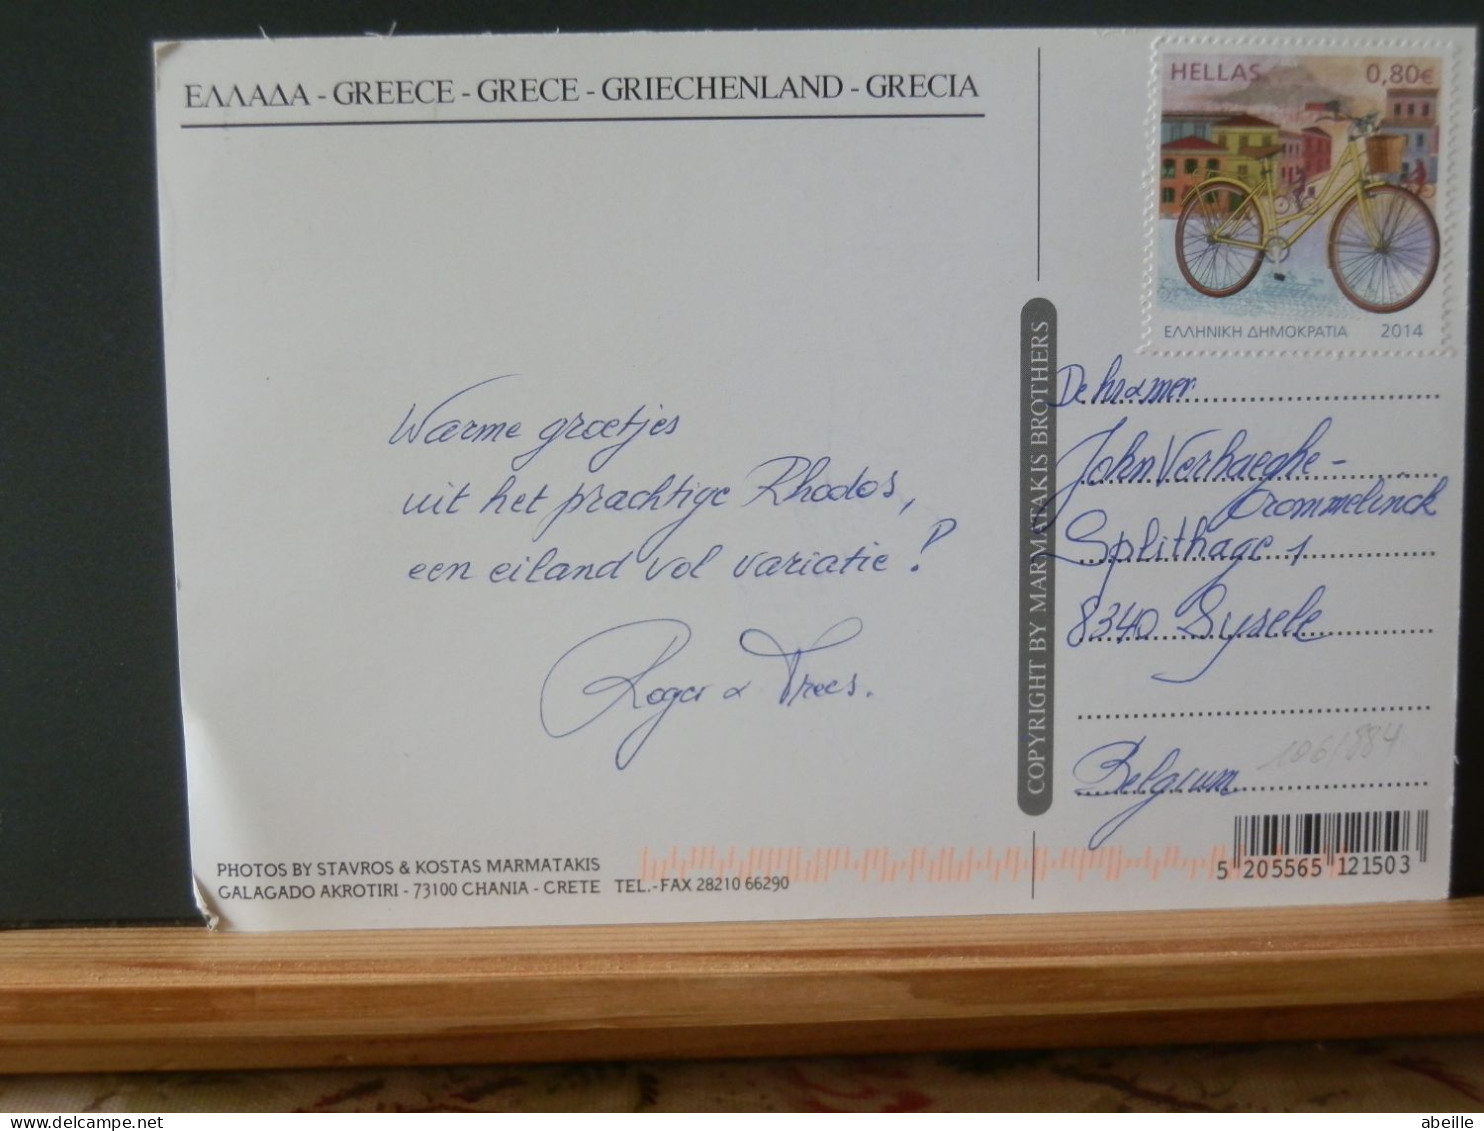 ΕΛΛΑΔΑ - GREECE - GRECE - GRIECHENLAND - GRECIA
HELLAS 0,80€
ΕΛΛΗΝΙΚΗ ΔΗΜΟΚΡΑΤΙΑ 2014
Warme groetjes
uit het prachtige Rhodos,
een eiland vol variatie!
Roger & Trees.
COPYRIGHT BY MARMATAKIS BROTHERS
De hr & mevr.
John Verhaeghe -
Drommelinck
Splithage 1
8340 Sysele
Belgium
106/884
PHOTOS BY STAVROS & KOSTAS MARMATAKIS
GALAGADO AKROTIRI - 73100 CHANIA - CRETE TEL.-FAX 28210 66290
5 205565 121503
abeille